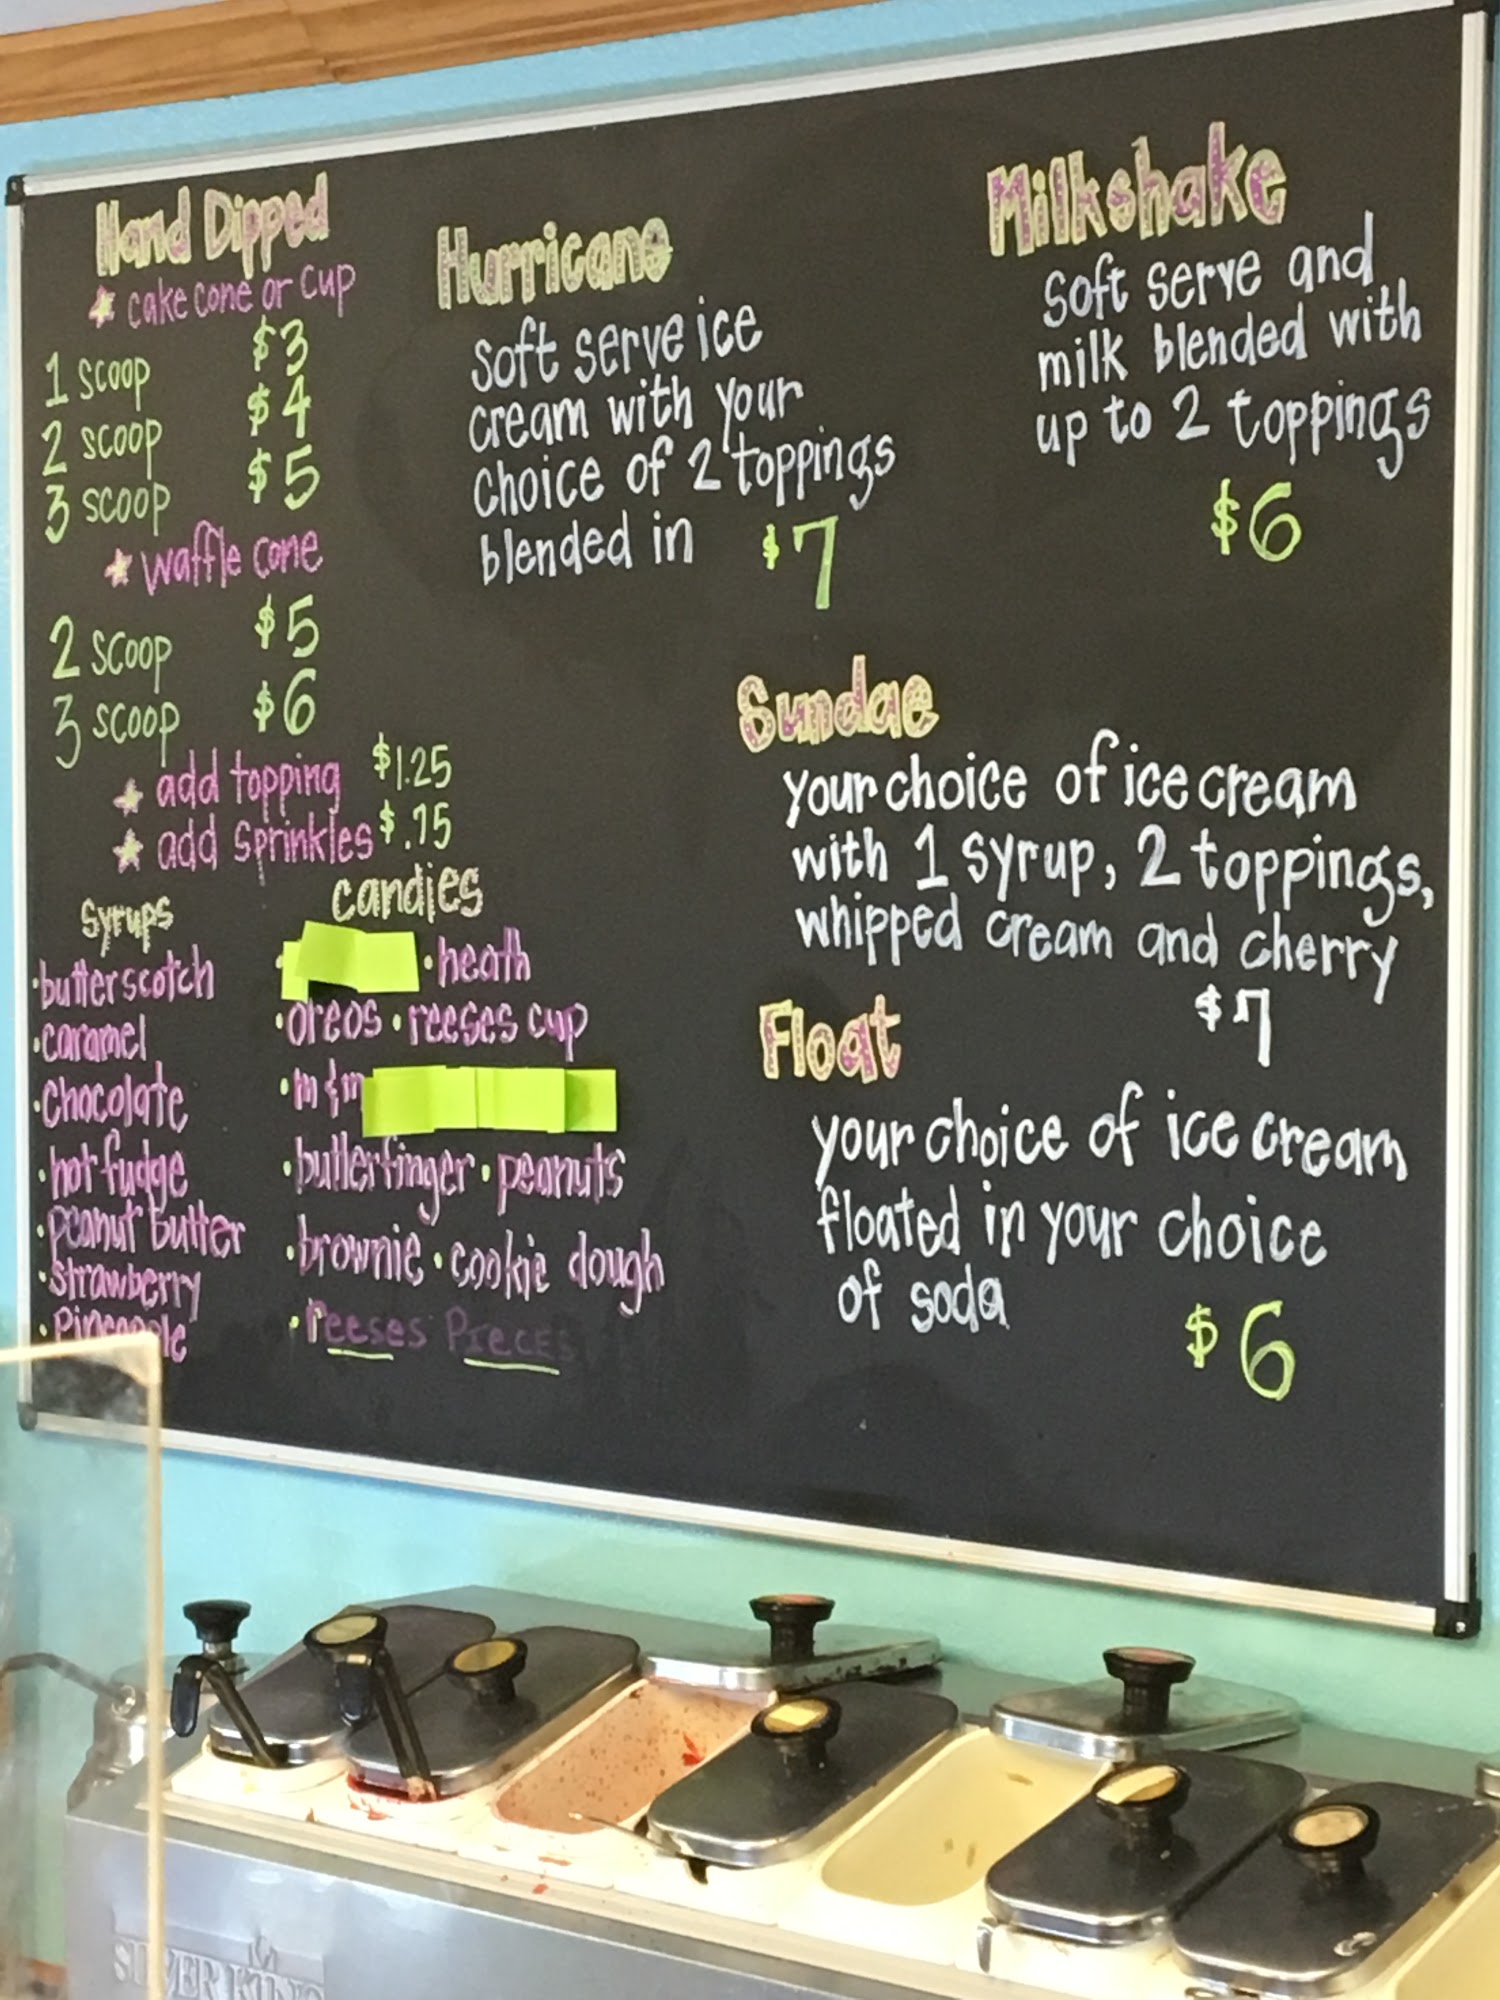 Hand Dipped
cake cone or cup
1 scoop $3
2 scoop $4
3 scoop $5
waffle cone
2 scoop $5
3 scoop $6
add topping $1.25
add sprinkles $.75
Syrups
·butterscotch
·caramel
·Chocolate
·hot fudge
·peanut butter
·strawberry
·Pineapple
candies
·heath
·oreos ·reeses cup
·m&m
·butterfinger ·peanuts
·brownie ·cookie dough
·reeses Pieces
Hurricane
soft serve ice
cream with your
choice of 2 toppings
blended in $7
Milkshake
soft serve and
milk blended with
up to 2 toppings
$6
Sundae
your choice of ice cream
with 1 syrup, 2 toppings,
whipped cream and cherry
$7
Float
your choice of ice cream
floated in your choice
of soda
$6
SILVER KING